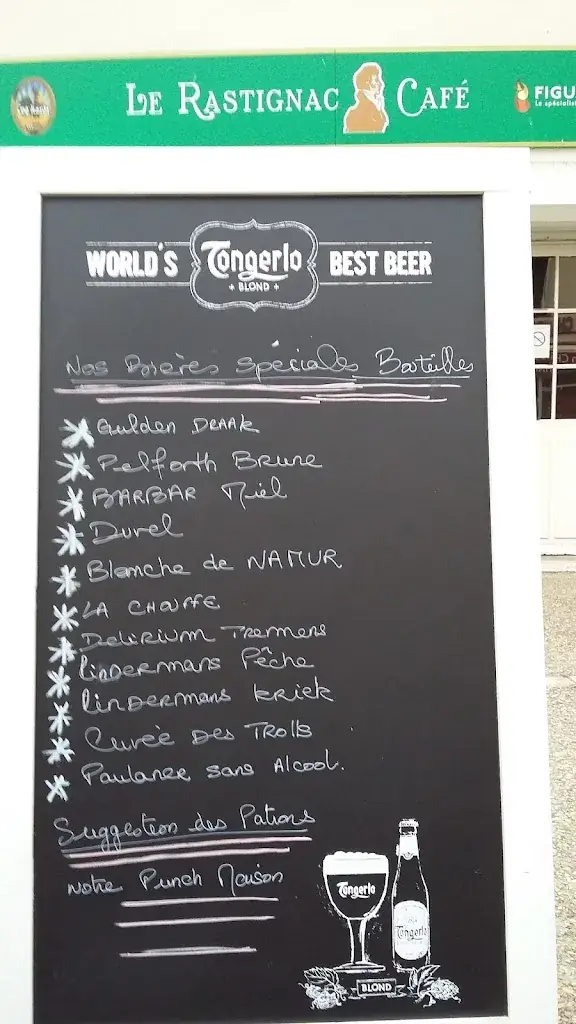 LE RASTIGNAC CAFÉ
FIGU
Le spécialist
WORLD'S Tongerlo BEST BEER
BLOND
Nos Bières spéciales Bouteilles
Gulden DRAAK
Pelforth BRUNE
BARBAR Miel
Duvel
Blanche de NAMUR
LA CHOUFFE
DELIRIUM TREMENS
LINDERMANS Pêche
LINDERMANS KRIEK
Cuvée DES TROLLS
Paulaner sans Alcool.
Suggestion des Patrons
Notre Punch Maison
Tongerlo
Tongerlo
BLOND